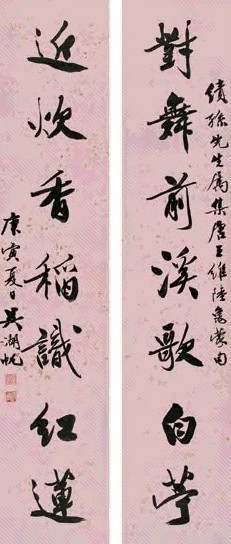 績孫先生屬集唐王維陸龜蒙句
對舞前溪歌白苧
近炊香稻識紅蓮
庚寅夏日吳湖帆